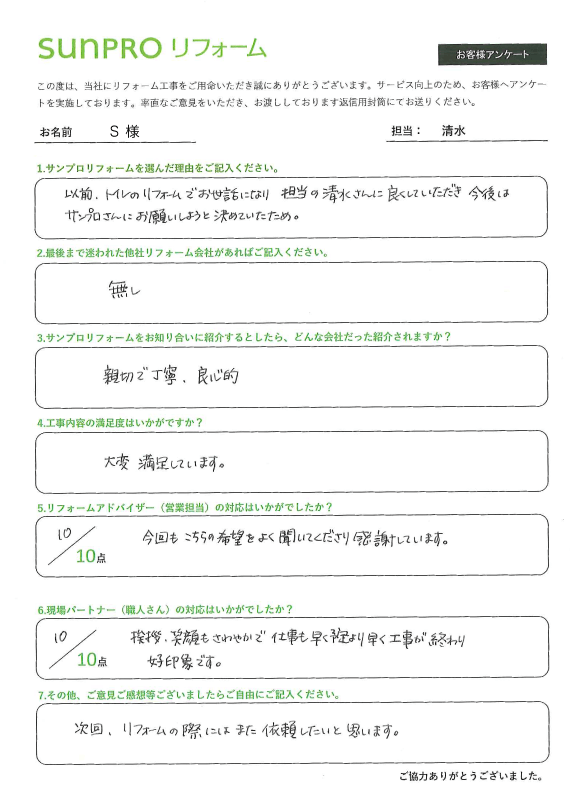 SUNPRO リフォーム
お客様アンケート
この度は、当社にリフォーム工事をご用命いただき誠にありがとうございます。サービス向上のため、お客様へアンケー
トを実施しております。率直なご意見をいただき、お渡ししております返信用封筒にてお送りください。
お名前 S 様 担当： 清水
1.サンプロリフォームを選んだ理由をご記入ください。
以前、トイレのリフォームでお世話になり 担当の清水さんに良くしていただき 今後は
サンプロさんにお願いしようと決めていたため。
2.最後まで迷われた他社リフォーム会社があればご記入ください。
無し
3.サンプロリフォームをお知り合いに紹介するとしたら、どんな会社だった紹介されますか？
親切で丁寧、良心的
4.工事内容の満足度はいかがですか？
大変 満足しています。
5.リフォームアドバイザー（営業担当）の対応はいかがでしたか？
10／10点 今回も こちらの希望をよく聞いてくださり感謝しています。
6.現場パートナー（職人さん）の対応はいかがでしたか？
10／10点 挨拶、笑顔もさわやかで 仕事も早く予定より早く工事が終わり
好印象です。
7.その他、ご意見ご感想等ございましたらご自由にご記入ください。
次回、リフォームの際には また 依頼したいと思います。
ご協力ありがとうございました。